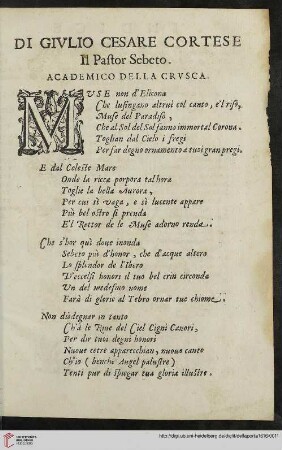 DI GIVLIO CESARE CORTESE
Il Pastor Sebeto.
ACADEMICO DELLA CRVSCA.
MVSE non d'Elicona
Che lusingano altrui col canto, e'l riso,
Muse del Paradiso,
Che al Sol del Sol fanno immortal Corona.
Toglian dal Cielo i fregi
Per far degno ornamento a tuoi gran pregi.
E dal Celeste Mare
Onde la ricca porpora tal'hora
Toglie la bella Aurora,
Per cui sì vaga, e sì lucente appare
Più bel ostro si prenda
E'l Rector de le Muse adorno renda.
Che s'hor quì doue inonda
Sebeto più d'honor, che d'acque altero
Lo splendor de l'Ibero
D'eccelsi honori il tuo bel crin circonda
Un dì medesmo nome
Farà di glorie al Tebro ornar tue chiome.
Non disdegnar in tanto
Ch'à le Riue del Ciel Cigni Canori,
Per dir tuoi degni honori
Nuoue cetre apparecchian, nuouo canto
Ch'io (benche Augel palustre)
Tenti pur di spiegar tua gloria illustre.
UNIVERSITÄTS-
BIBLIOTHEK
HEIDELBERG